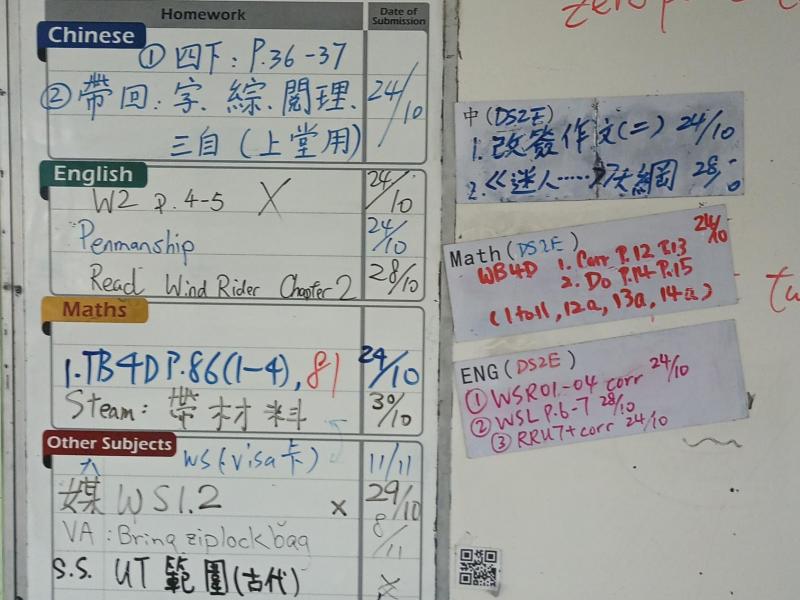 zero p
Homework
Date of Submission
Chinese
① 四下: P.36-37
② 帶回: 字、綜、閱理、 24/10
三自 (上堂用)
English
W2 P.4-5 X 24/10
Penmanship 24/10
Read Wind Rider Chapter 2 28/10
Maths
1. TB4D P.86(1-4), 81 24/10
Steam: 帶材料 30/10
Other Subjects
WS (visa卡) 11/11
媒 WS1.2 x 29/10
VA: Bring ziplock bag 8/11
S.S. UT 範圍(古代) x
中(DS2E)
1. 改發作文(二) 24/10
2.《迷人……》大綱 28/10
Math(DS2E) 24/10
WB4D 1. Corr P.12 P.13
2. Do P.14 P.15
(1 to 11, 12a, 13a, 14a)
tu
ENG(DS2E)
① WSR01-04 corr 24/10
② WSL P.6-7 28/10
③ RRU7+corr 24/10